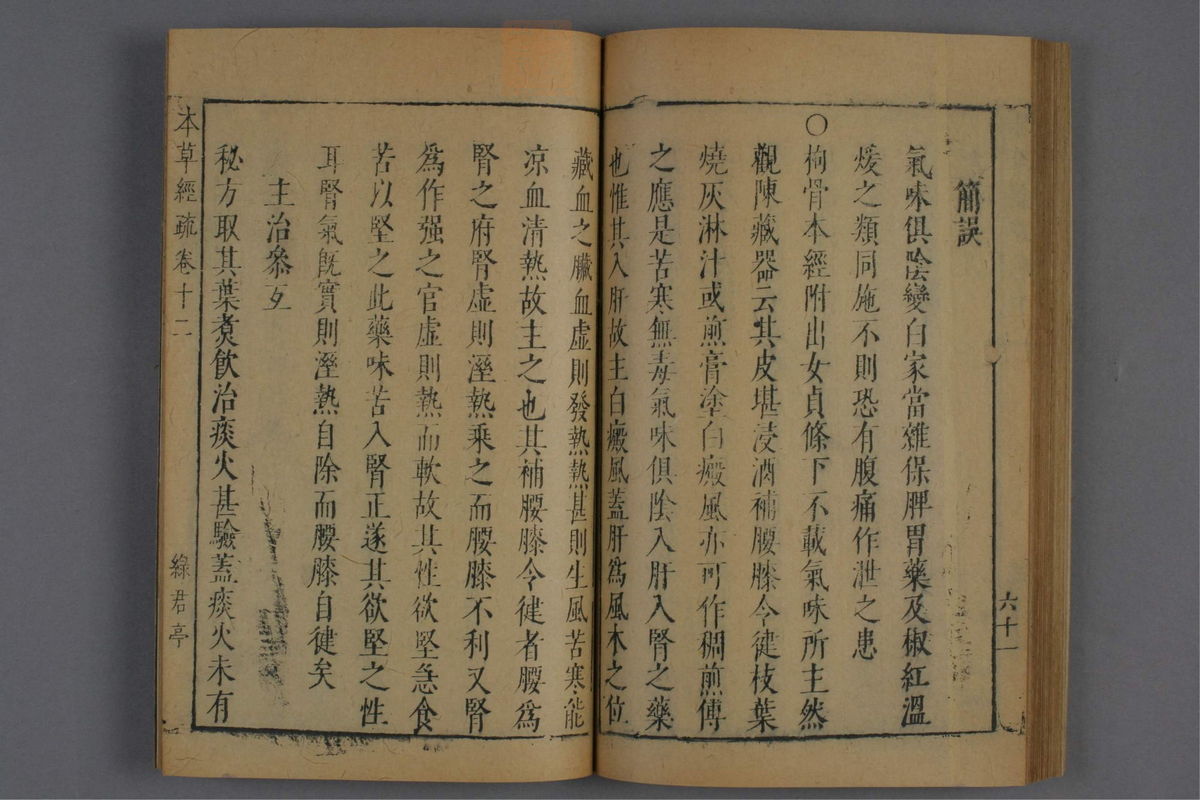 六十一
簡誤
氣味俱陰變白家當雜保脾胃藥及椒紅溫
煖之類同施不則恐有腹痛作泄之患
○枸骨本經附出女貞條下不載氣味所主然
觀陳藏器云其皮堪浸酒補腰膝令健枝葉
燒灰淋汁或煎膏塗白癜風亦可作稠煎傅
之應是苦寒無毒氣味俱陰入肝入腎之藥
也惟其入肝故主白癜風蓋肝爲風木之位
藏血之臟血虛則發熱熱甚則生風苦寒能
凉血清熱故主之也其補腰膝令健者腰爲
腎之府腎虛則溼熱乘之而腰膝不利又腎
爲作强之官虛則熱而軟故其性欲堅急食
苦以堅之此藥味苦入腎正遂其欲堅之性
耳腎氣旣實則溼熱自除而腰膝自健矣
主治叅互
秘方取其葉煑飲治痰火甚驗蓋痰火未有
本草經疏卷十二
綠君亭